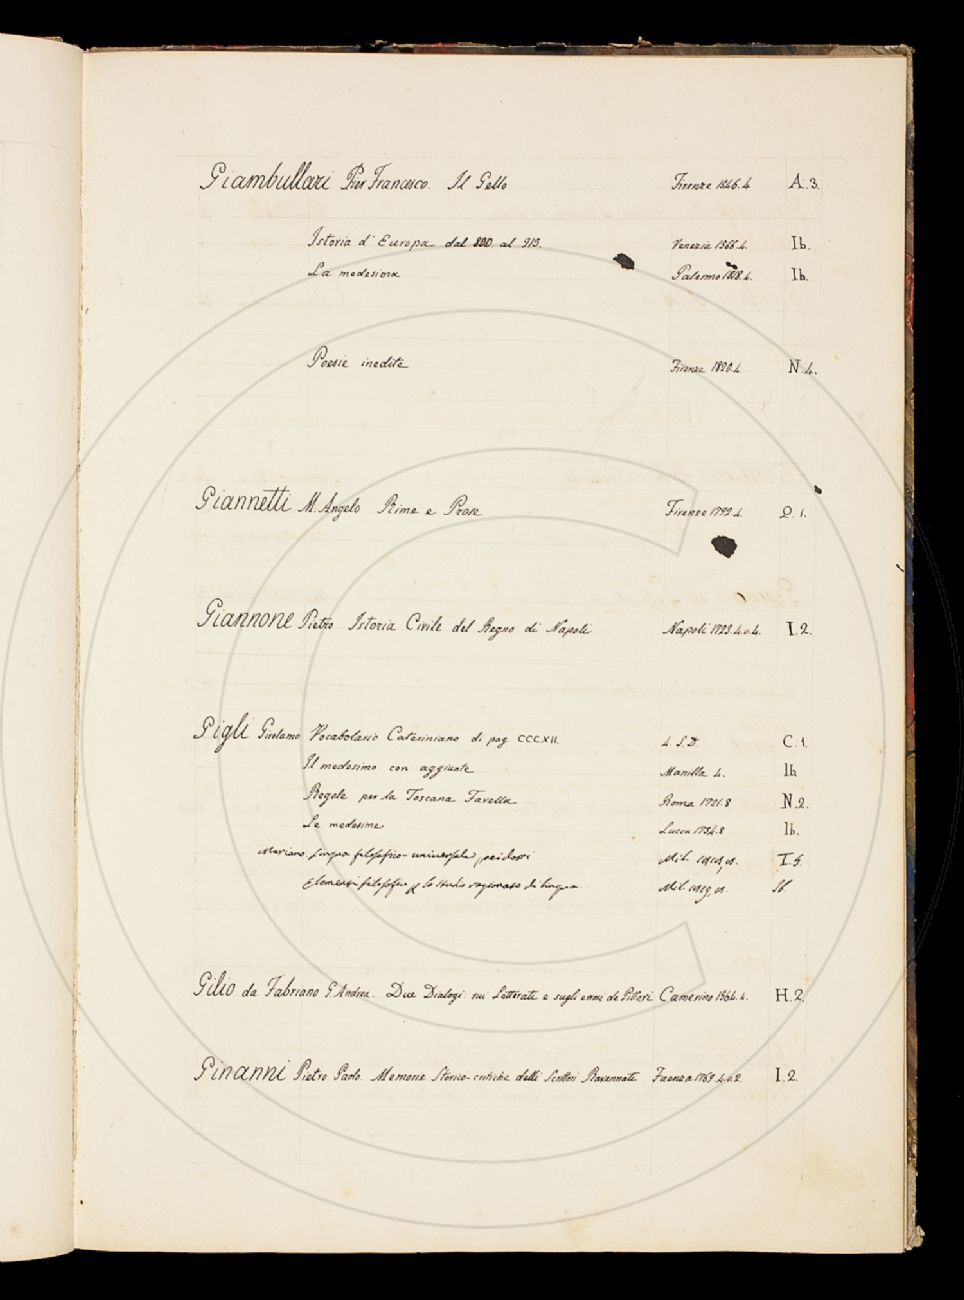 Giambullari Pier Francesco. Il Gello Firenze 1546. 4 A. 3.
Istoria d'Europa dal 800 al 913. Venezia 1566. 4. Ib.
La medesima Palermo 1818. 4. Ib.
Poesie inedite Firenze 1820. 4 N. 4.
Giannetti M. Angelo Rime e Prose Firenze 1792. 4. O. 1.
Giannone Pietro Istoria Civile del Regno di Napoli Napoli 1723. 4. v. 4. I. 2.
Gigli Girolamo Vocabolario Cateriniano di pag CCCXII. 4. S.D. C. 1.
Il medesimo con aggiunte Manilla 4. Ib
Regole per la Toscana Favella Roma 1721. 8 N. 2.
Le medesime Lucca 1734. 8 Ib.
Mariano Lingua filosofico-universale pei dotti Mil. T. 5.
Elementi filosofici p lo studio ragionato di lingua Mil. Ib
Gilio da Fabriano G. Andrea. Due Dialogi sui Letterati e sugli errori de Pittori Camerino 1564. 4. H. 2.
Ginanni Pietro Paolo. Memorie Storico-critiche delli Scrittori Ravennati Faenza 1769. 4. v. 2 I. 2.